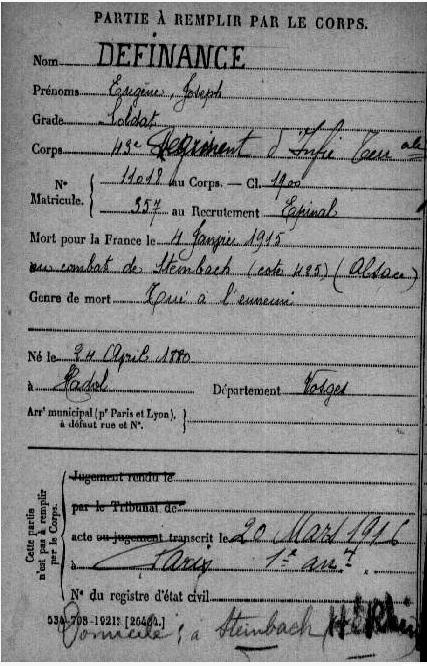 PARTIE À REMPLIR PAR LE CORPS.
Nom DEFINANCE
Prénoms Eugène, Joseph
Grade Soldat
Corps 43e Régiment d'Infie Terr ale
N° Matricule. { 11018 au Corps. — Cl. 1900
357 au Recrutement Epinal
Mort pour la France le 4 Janvier 1915
au combat de Steinbach (cote 425) (Alsace)
Genre de mort Tué à l'ennemi
Né le 24 Avril 1880
à Hadol Département Vosges
Arrt municipal (pr Paris et Lyon), à défaut rue et N°. }
Cette partie n'est pas à remplir par le Corps. {
Jugement rendu le
par le Tribunal de
acte ou jugement transcrit le 20 Mars 1916
à Paris 1er arrt.
N° du registre d'état civil
534-708-1921. [26434.]
Domicile : à Steinbach Ht Rhin